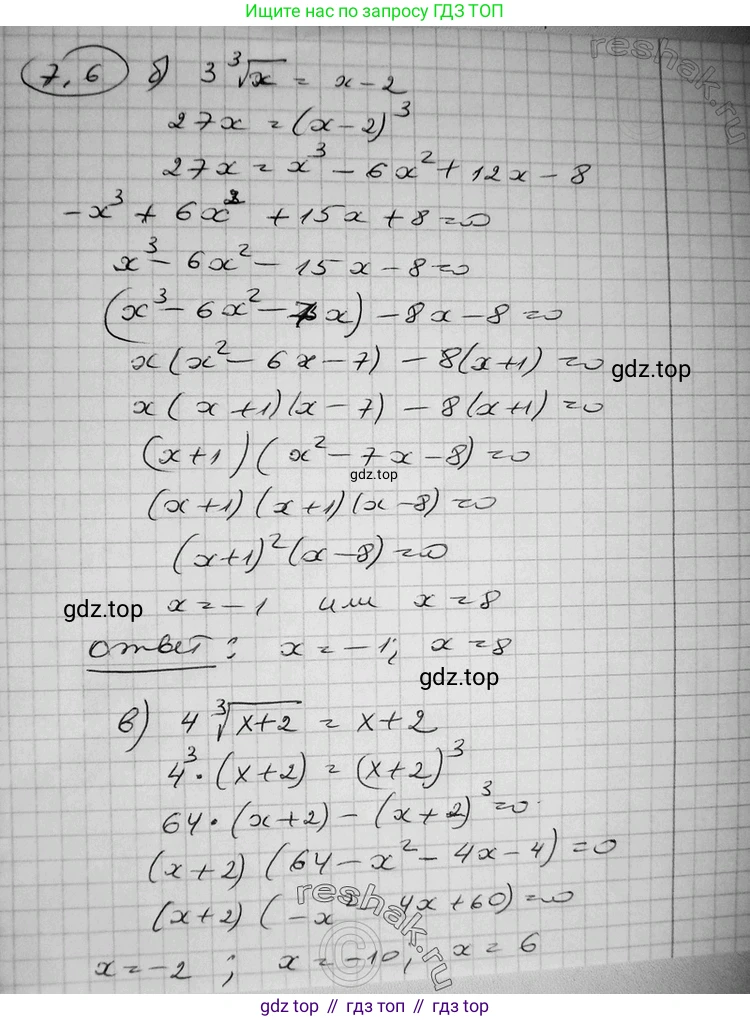 Ищите нас по запросу ГДЗ ТОП
reshak.ru
7,6 б) 3∛x = x - 2
27x = (x-2)³
27x = x³ - 6x² + 12x - 8
-x³ + 6x² + 15x + 8 = 0
x³ - 6x² - 15x - 8 = 0
(x³ - 6x² - 7x) - 8x - 8 = 0
x(x² - 6x - 7) - 8(x+1) = 0
gdz.top
x(x+1)(x-7) - 8(x+1) = 0
(x+1)(x² - 7x - 8) = 0
gdz.top
(x+1)(x+1)(x-8) = 0
(x+1)²(x-8) = 0
gdz.top
x = -1 или x = 8
ответ: x = -1; x = 8
gdz.top
в) 4∛(x+2) = x+2
4³·(x+2) = (x+2)³
64·(x+2) - (x+2)³ = 0
(x+2)(64 - x² - 4x - 4) = 0
(x+2)(-x² - 4x + 60) = 0
reshak.ru
©
x = -2; x = -10; x = 6
gdz top // гдз топ // gdz.top